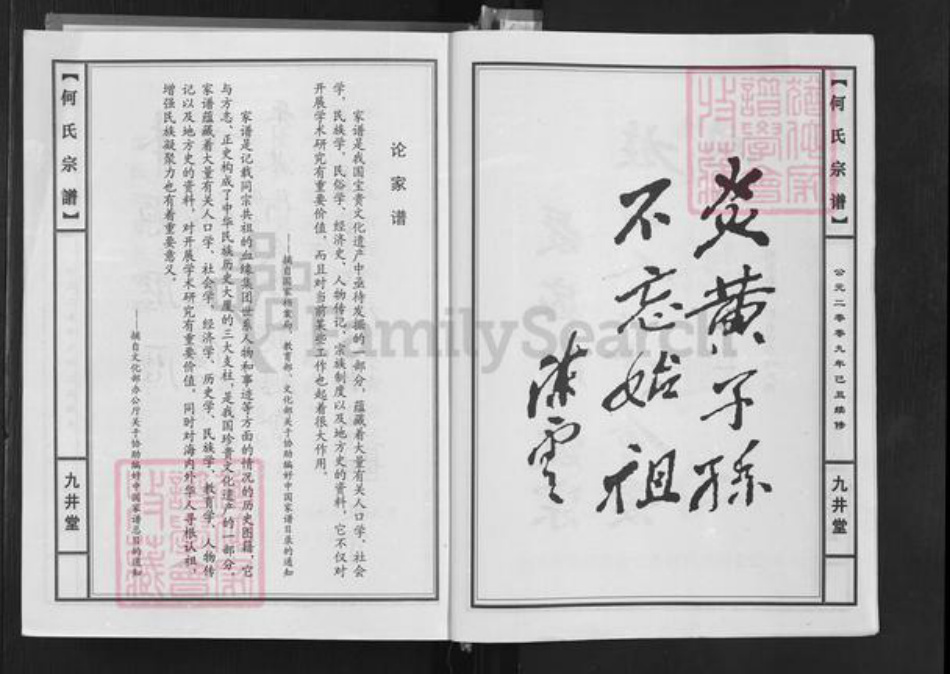 【何氏宗譜】
公元二零零九年己丑续修
九井堂
炎黄子孙
不忘始祖
陈云
论家谱
家谱是我国宝贵文化遗产中亟待发掘的一部分，蕴藏着大量有关人口学、社会
学、民族学、民俗学、经济史、人物传记、宗族制度以及地方史的资料，它不仅对
开展学术研究有重要价值，而且对当前某些工作也起着很大作用。
——摘自国家档案局、教育部、文化部关于协助编好中国家谱目录的通知
家谱是记载同宗共祖的血缘集团世系人物和事迹等方面的情况的历史图籍，它
与方志、正史构成了中华民族历史大厦的三大支柱，是我国珍贵文化遗产的一部分，
家谱蕴藏着大量有关人口学、社会学、经济学、历史学、民族学、教育学、人物传
记以及地方史的资料，对开展学术研究有重要价值，同时对海内外华人寻根认祖，
增强民族凝聚力也有着重要意义。
——摘自文化部办公厅关于协助编好中国家谱总目的通知
【何氏宗譜】
九井堂
FamilySearch